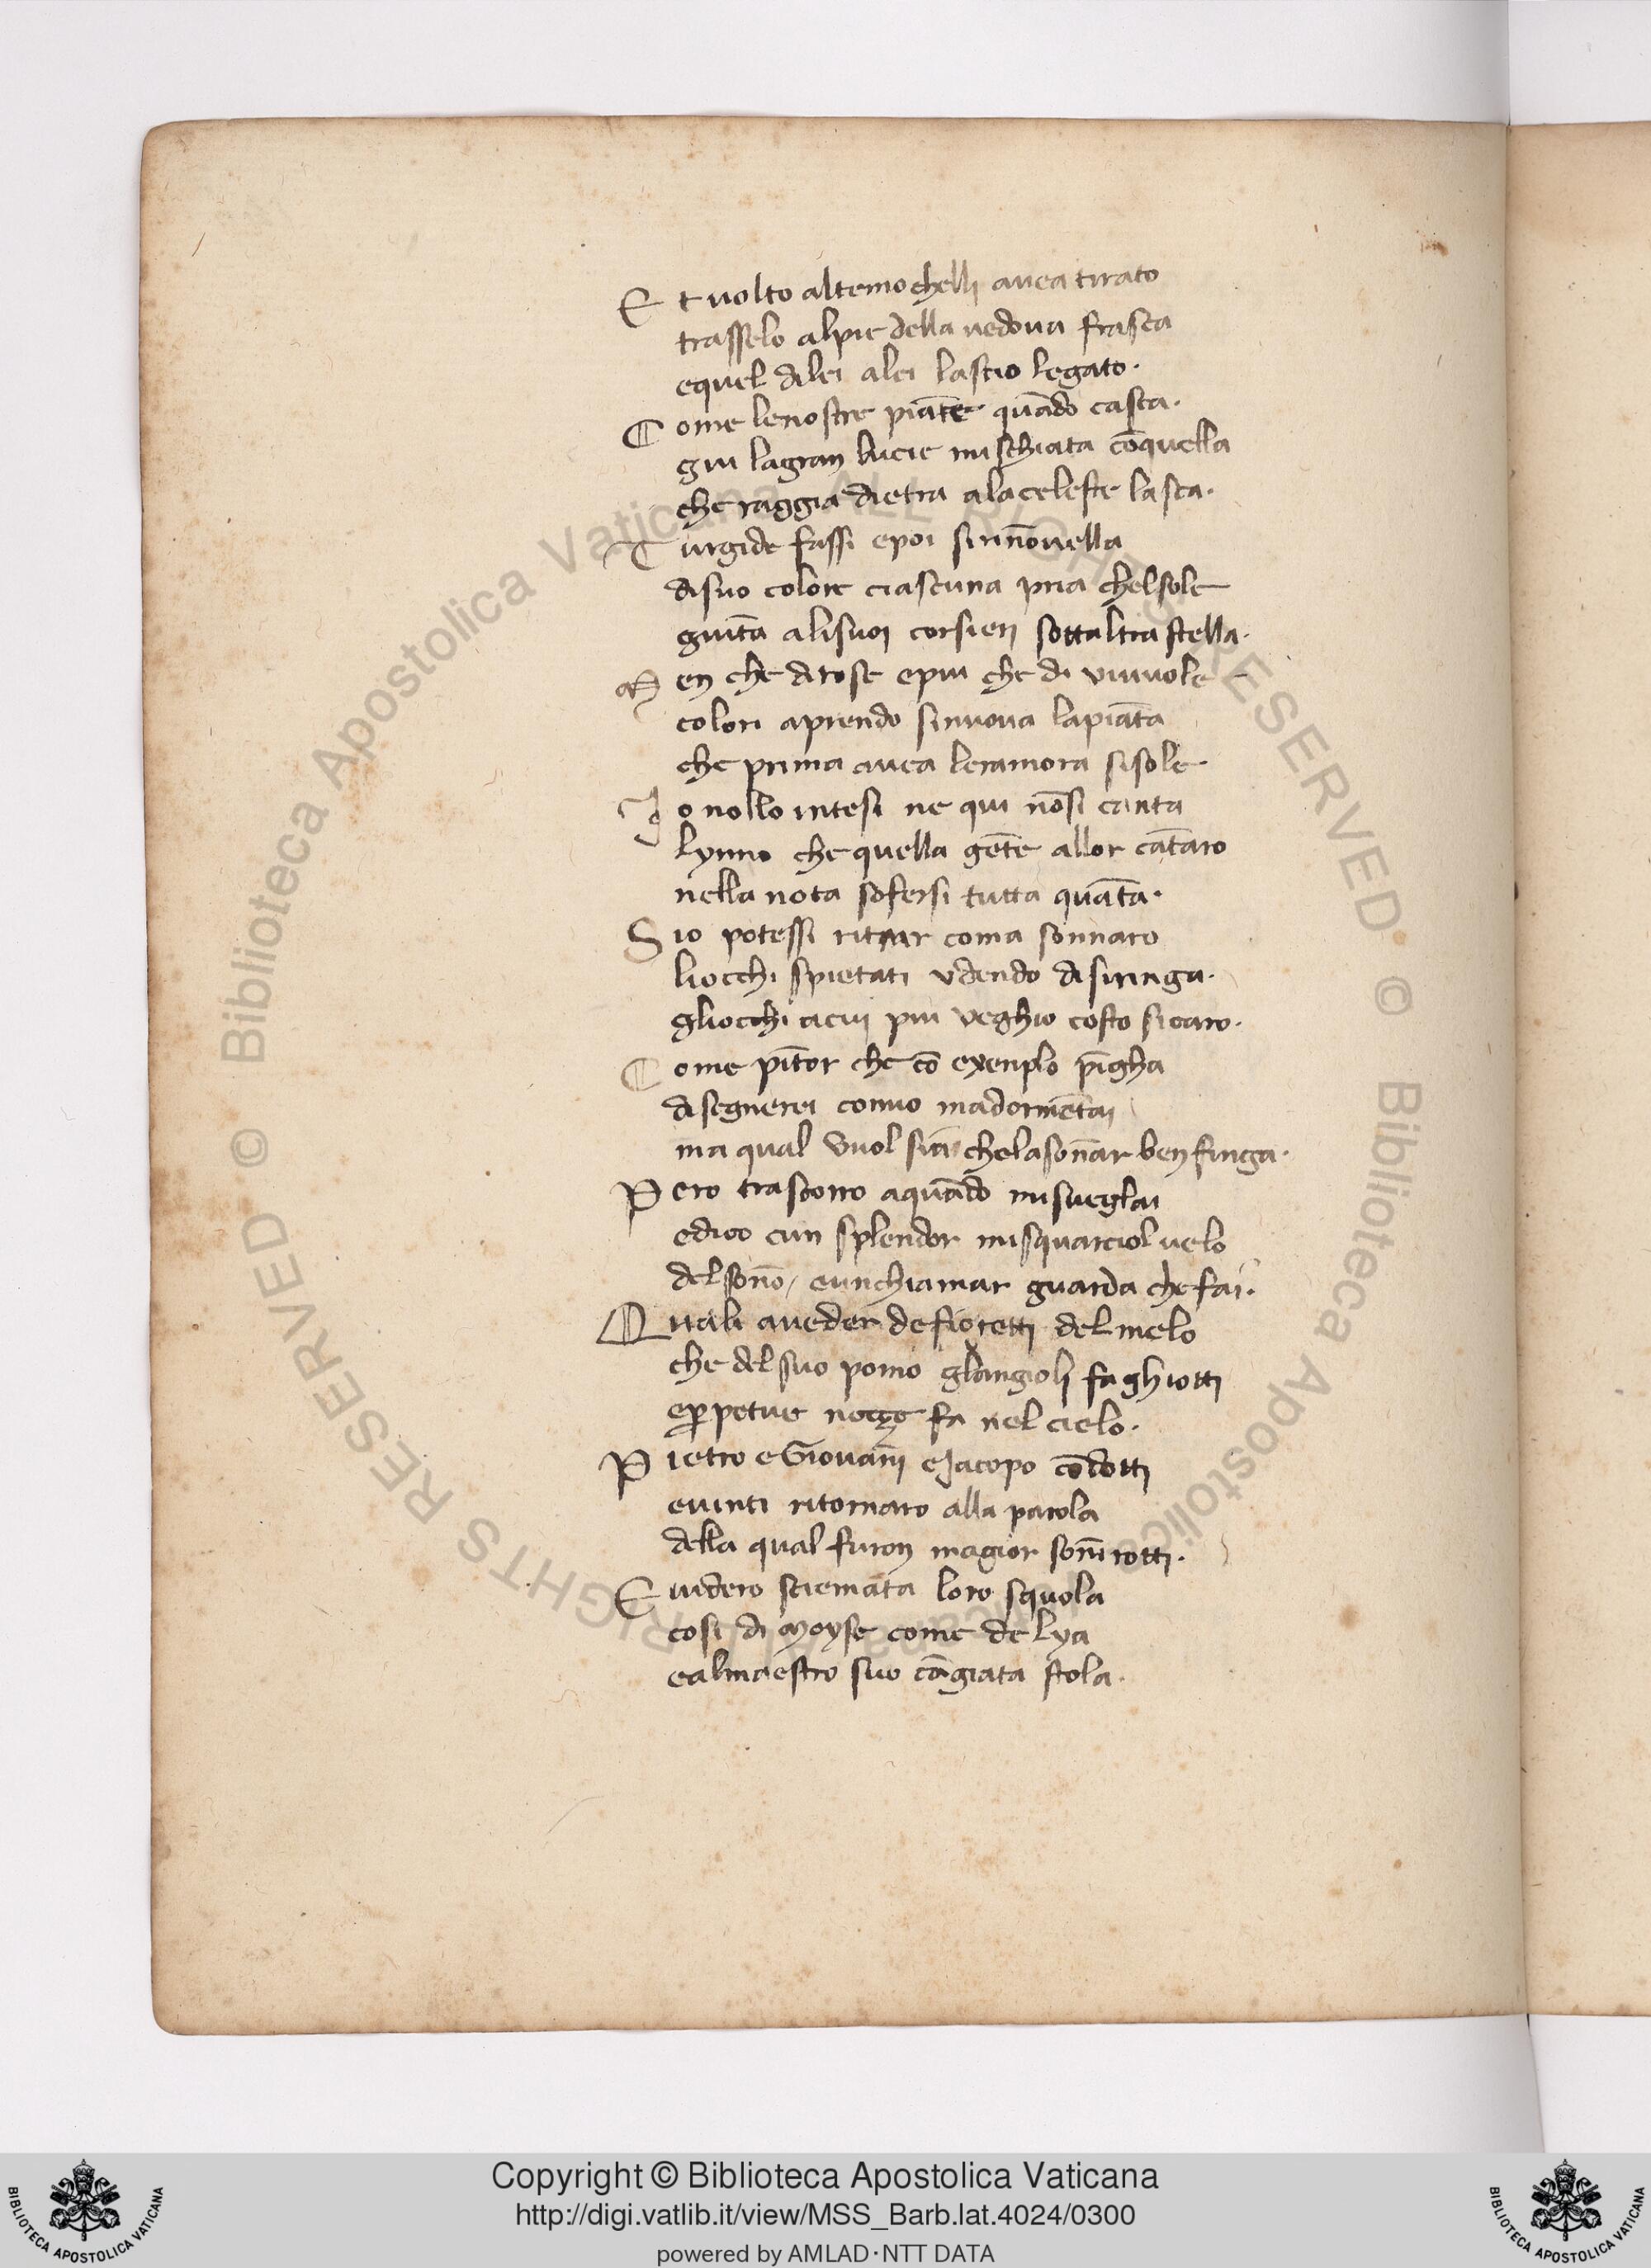 E t uolto altemo chellj auea tirato
trasselo alpie della uedoua frasca
equel dilei alei lascio legato.
C ome lenostre piāte quādo casca.
giu lagran lucie mischiata cōquella
che raggia dietra alaceleste lasca.
T urgide fassi epoi sirinōuella
disuo colore ciascuna pria chelsole
giūta alisuoi corsien sottaltra stella.
M en che dirose epiu che di uiuuole
colori aprendo sinuoua lapiāta
che prima auea leramora sisole
I o nollo intesi ne qui nōsi canta
lynno che quella gēte allor cātaro
nella nota sofersi tutta quāta.
S io potessi ritrar coma sonnaro
liocchi spietati udendo disiringa.
gliocchi acui piu ueghio costo sicaro.
C ome pītor che cō exenplo pīgha
disegnerei comio madormētai
ma qual uuol sia chelasonār ben finga.
P ero trascorro aquādo misueglai
edico cun splendor misquarciol uelo
delsonō, eunchiamar guarda che fai.
Q uali aueder defioretti del melo
che del suo pomo glangiolj fa ghiotti
eꝑpetue nocçe fa nel cielo.
P ietro e Giouānj eJacopo cōdotti
euinti ritornaro alla parola
della qual furon magior sonnī rotti.
E uidero sciemata loro squola
cosi di Moyse come de lya
ealmaestro suo cāgiata stola.
Copyright © Biblioteca Apostolica Vaticana
http://digi.vatlib.it/view/MSS_Barb.lat.4024/0300
powered by AMLAD·NTT DATA
BIBLIOTECA APOSTOLICA VATICANA
BIBLIOTECA APOSTOLICA VATICANA
© Biblioteca Apostolica Vaticana ALL RIGHTS RESERVED
© Biblioteca Apostolica Vaticana ALL RIGHTS RESERVED